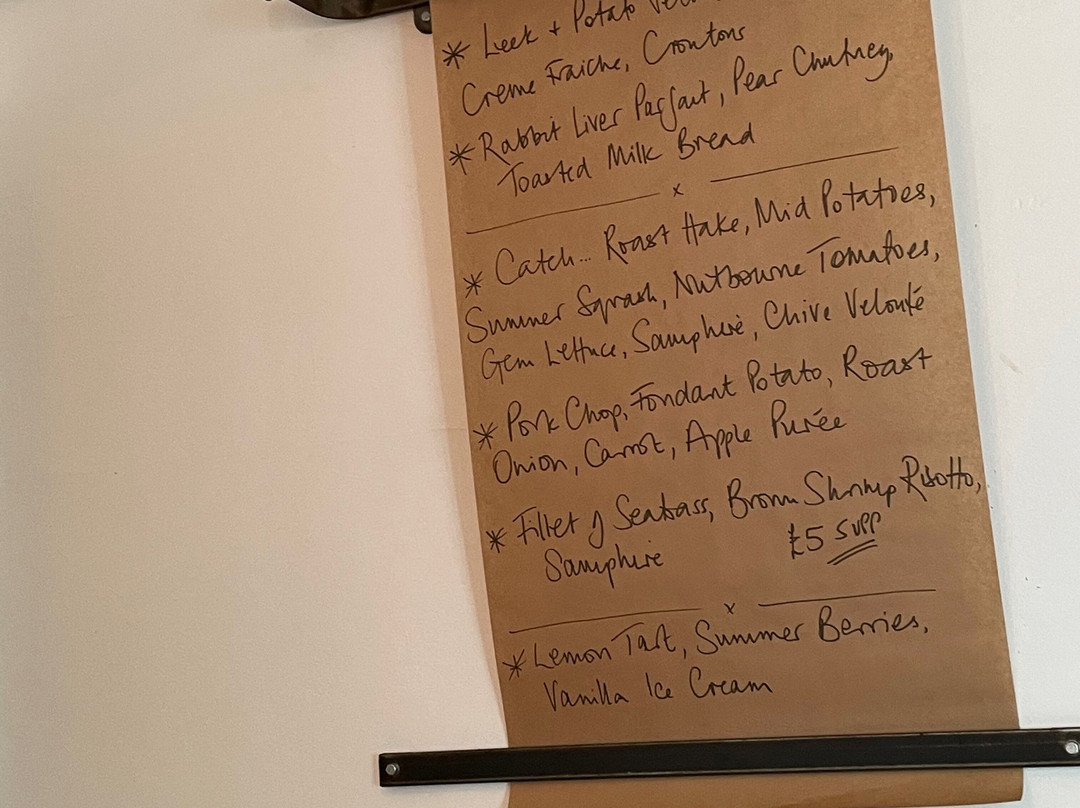 * Leek + Potato
Creme Fraiche, Croutons
* Rabbit Liver Parfait, Pear Chutney,
Toasted Milk Bread
x
* Catch... Roast Hake, Mid Potatoes,
Summer Squash, Nutbourne Tomatoes,
Gem Lettuce, Samphire, Chive Velouté
* Pork Chop, Fondant Potato, Roast
Onion, Carrot, Apple Purée
* Fillet of Seabass, Brown Shrimp Risotto,
Samphire £5 supp
x
* Lemon Tart, Summer Berries,
Vanilla Ice Cream